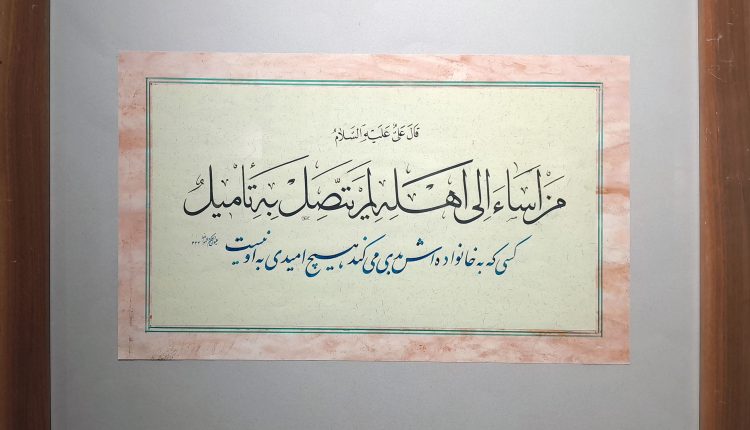 قَالَ عَلیٌّ عَلَیْهِ السَّلامُ
مَنْ اَساءَ اِلی اَهْلِهِ لَمْ یَتَّصِلْ بِهِ تَأمیلُ
کسی که به خانواده‌اش بدی می‌کند هیچ امیدی به او نیست